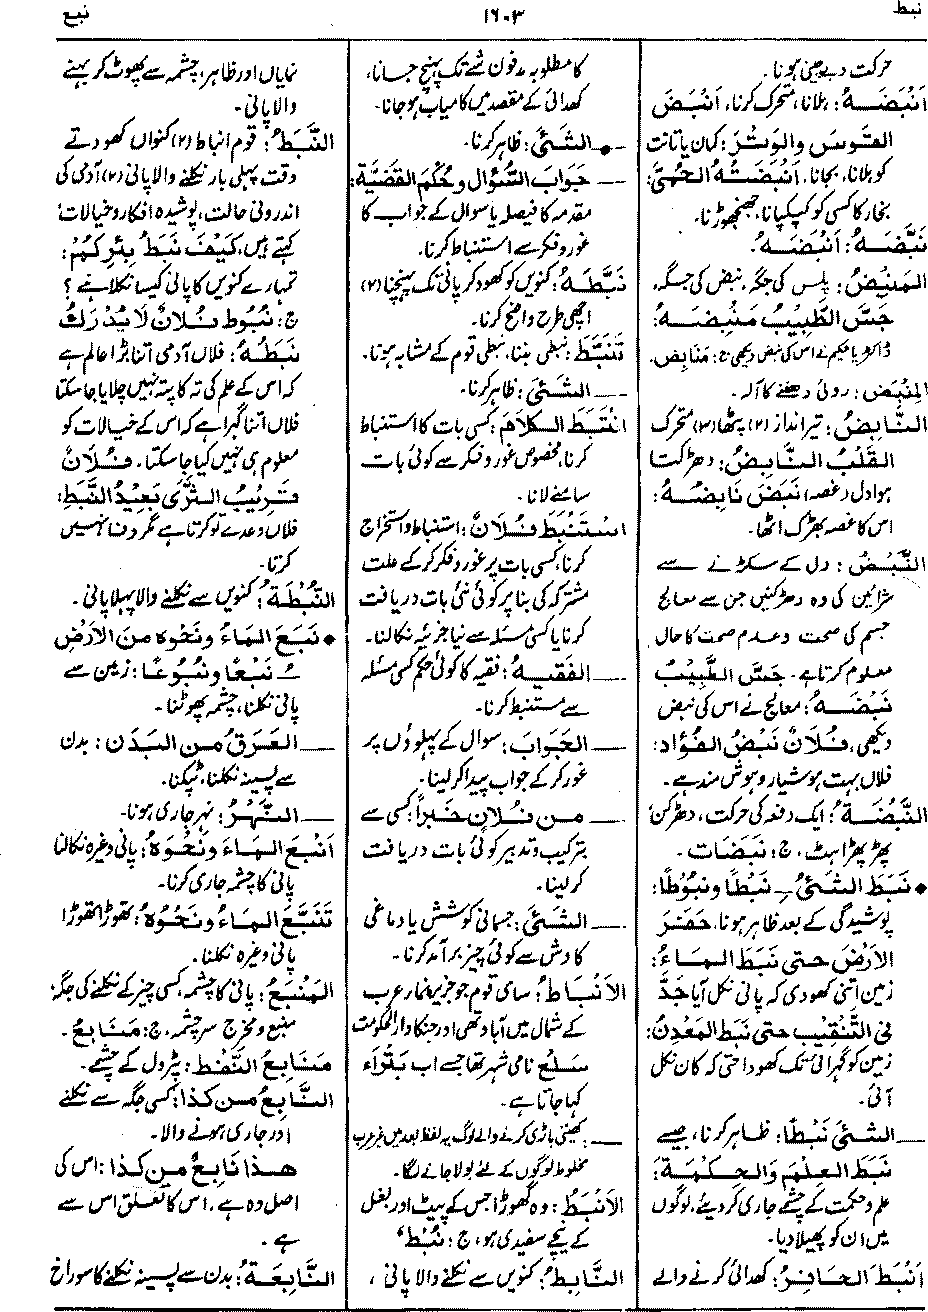 نبط
۱۶۰۳
نبع
حرکت دبے چینی ہونا۔
أَنْبَضَهُ: ہلانا، متحرک کرنا، أَنْبَضَ
القَوسَ والوَتَرَ: کمان یا تانت
کو ہلانا، بجانا. أَنْبَضَتْهُ الحُمَّى:
بخار کا کسی کو کپکپانا، جھنجھوڑنا۔
نَبَّضَهُ: أَنْبَضَهُ.
المَنْبِضُ: پلس کی جگہ، نبض کی جگہ،
جَسَّ الطَّبِيبُ مَنْبِضَهُ:
ڈاکٹر یا حکیم نے اس کی نبض دیکھی ج: مَنَابِض۔
المِنْبَض: روئی دھنکنے کا آلہ۔
النَّابِضُ: تیر انداز (۲) پٹھا (۳) متحرک
القَلْبُ النَّابِضُ: دھڑکتا
ہوا دل، غصہ، نَبَضَ نَابِضُهُ:
اس کا غصہ بھڑک اٹھا۔
النَّبْضُ: دل کے سکڑنے سے
شرائین کی وہ دھڑکنیں جن سے معالج
جسم کی صحت و عدم صحت کا حال
معلوم کرتا ہے۔ جَسَّ الطَّبِيْبُ
نَبْضَهُ: معالج نے اس کی نبض
دیکھی، فُلَانٌ نَبْضُ الفُؤَاد:
فلاں بہت ہوشیار و ہوش مند ہے۔
النَّبْضَةُ: ایک دفعہ کی حرکت، دھڑکن
پھڑپھڑاہٹ، ج: نَبَضَات۔
♦ نَبَطَ الشَّئُ ـِ نَبْطًا ونُبُوْطًا:
پوشیدگی کے بعد ظاہر ہونا، حَفَرَ
الأَرْضَ حتى نَبَطَ المَاءُ:
زمین اتنی کھودی کہ پانی نکل آیا جَدَّ
فی التَّنْقِيْبِ حتى نَبَطَ المَعْدِنُ:
زمین کو گہرائی تک کھودا حتی کہ کان نکل
آئی۔
ــــ الشَّئَ نَبْطًا: ظاہر کرنا، جیسے
نَبَطَ العِلْمَ وَالحِكْمَةَ:
علم و حکمت کے چشمے جاری کر دیئے، لوگوں
میں ان کو پھیلا دیا۔
أَنْبَطَ الحَافِرُ: کھدائی کرنے والے
کا مطلوبہ مدفون شے تک پہنچ جانا،
کھدائی کے مقصد میں کامیاب ہو جانا۔
ــــ الشَّئَ: ظاہر کرنا۔
ــــ جَوَابَ السُّؤَالِ وحُكْمَ القَضِيَّةِ:
مقدمہ کا فیصلہ یا سوال کے جواب کا
غور و فکر سے استنباط کرنا۔
نَبَّطَهُ: کنویں کو کھود کر پانی تک پہنچنا (۲)
اچھی طرح واضح کرنا۔
تَنَبَّطَ: نبطی بننا، نبطی قوم کے مشابہ ہونا۔
ــــ الشَّئَ: ظاہر کرنا۔
انْتَبَطَ الكَلَامَ: کسی بات کا استنباط
کرنا، مخصوص غور و فکر سے کوئی بات
سامنے لانا۔
اسْتَنْبَطَ فُلَانٌ: استنباط و استخراج
کرنا، کسی بات پر غور و فکر کر کے علت
مشترکہ کی بنا پر کوئی نئی بات دریافت
کرنا یا کسی مسئلہ سے نیا جزئیہ نکالنا۔
ــــ الفَقِيهُ: فقیہ کا کوئی حکم کسی مسئلہ
سے مستنبط کرنا۔
ــــ الجَوَابَ: سوال کے پہلوؤں پر
غور کر کے جواب پیدا کر لینا۔
ــــ مِن فُلَانٍ خَبَرًا: کسی سے
بترکیب و تدبیر کوئی بات دریافت
کر لینا۔
ــــ الشَّئَ: جسمانی کوشش یا دماغی
کاوش سے کوئی چیز برآمد کرنا۔
الأَنْبَاطُ: سامی قوم جو جزیرہ نمائے عرب
کے شمال میں آباد تھی اور جنکا دارالحکومت
سَلْع نامی شہر تھا جسے اب بَتْرَاء
کہا جاتا ہے۔
ــــ: کھیتی باڑی کرنے والے لوگ یہ لفظ بعد میں غیر عرب
مخلوط لوگوں کے لئے بولا جانے لگا۔
الأَنْبَطُ: وہ گھوڑا جس کے پیٹ اور بغل
کے نیچے سفیدی ہو، ج: نُبْطٌ
النَّابِطُ: کنویں سے نکلنے والا پانی،
نمایاں اور ظاہر، چشمہ سے پھوٹ کر بہنے
والا پانی۔
النَّبَطُ: قوم انباط (۲) کنواں کھودتے
وقت پہلی بار نکلنے والا پانی (۲) آدمی کی
اندرونی حالت، پوشیدہ افکار و خیالات،
کہتے ہیں، كَيْفَ نَبَطُ بِئْرِكُمْ:
تمہارے کنویں کا پانی کیسا نکلا ہے؟
ج: نُبُوط فُلَانٌ لَا يُدْرَكُ
نَبَطُهُ: فلاں آدمی اتنا بڑا عالم ہے
کہ اس کے علم کی تہ کا پتہ نہیں چلایا جا سکتا
فلاں اتنا گہرا ہے کہ اس کے خیالات کو
معلوم ہی نہیں کیا جا سکتا۔ فُلَانٌ
قَرِيْبُ الثَّرَى بَعِيدُ النَّبَطِ:
فلاں وعدے تو کرتا ہے مگر وفا نہیں
کرتا۔
النُّبْطَةُ: کنویں سے نکلنے والا پہلا پانی۔
♦ نَبَعَ المَاءُ ونَحْوُهُ مِنَ الأَرْضِ
ـُـ نَبْعًا ونُبُوعًا: زمین سے
پانی نکلنا، چشمہ پھوٹنا۔
ــــ العَرَقُ مِنَ البَدَنِ: بدن
سے پسینہ نکلنا، ٹپکنا۔
ــــ النَّهْرُ: نہر جاری ہونا۔
أَنْبَعَ المَاءَ ونَحْوَهُ: پانی وغیرہ نکالنا
پانی کا چشمہ جاری کرنا۔
تَنَبَّعَ المَاءُ ونَحْوُهُ: تھوڑا تھوڑا
پانی وغیرہ نکلنا۔
المَنْبَعُ: پانی کا چشمہ، کسی چیز کے نکلنے کی جگہ،
منبع و مخرج سر چشمہ، ج: مَنَابِعُ۔
مَنَابِعُ النَّفْطِ: پٹرول کے چشمے۔
النَّابِعُ مِن كَذا: کسی جگہ سے نکلنے
اور جاری ہونے والا۔
هٰذا نَابِعٌ مِن كَذا: اس کی
اصل وہ ہے، اس کا تعلق اس سے
ہے۔
النَّابِعَةُ: بدن سے پسینہ نکلنے کا سوراخ